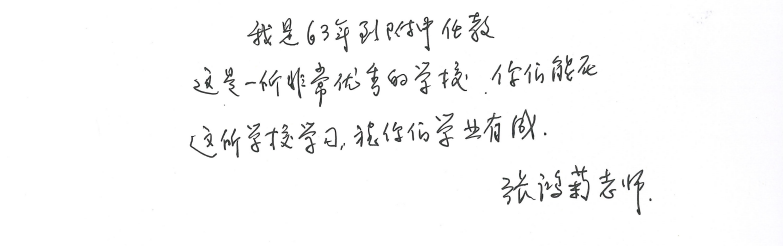 我是63年到附中任教
这是一所非常优秀的学校，你们能在
这所学校学习，祝你们学业有成．
张鸿菊老师．